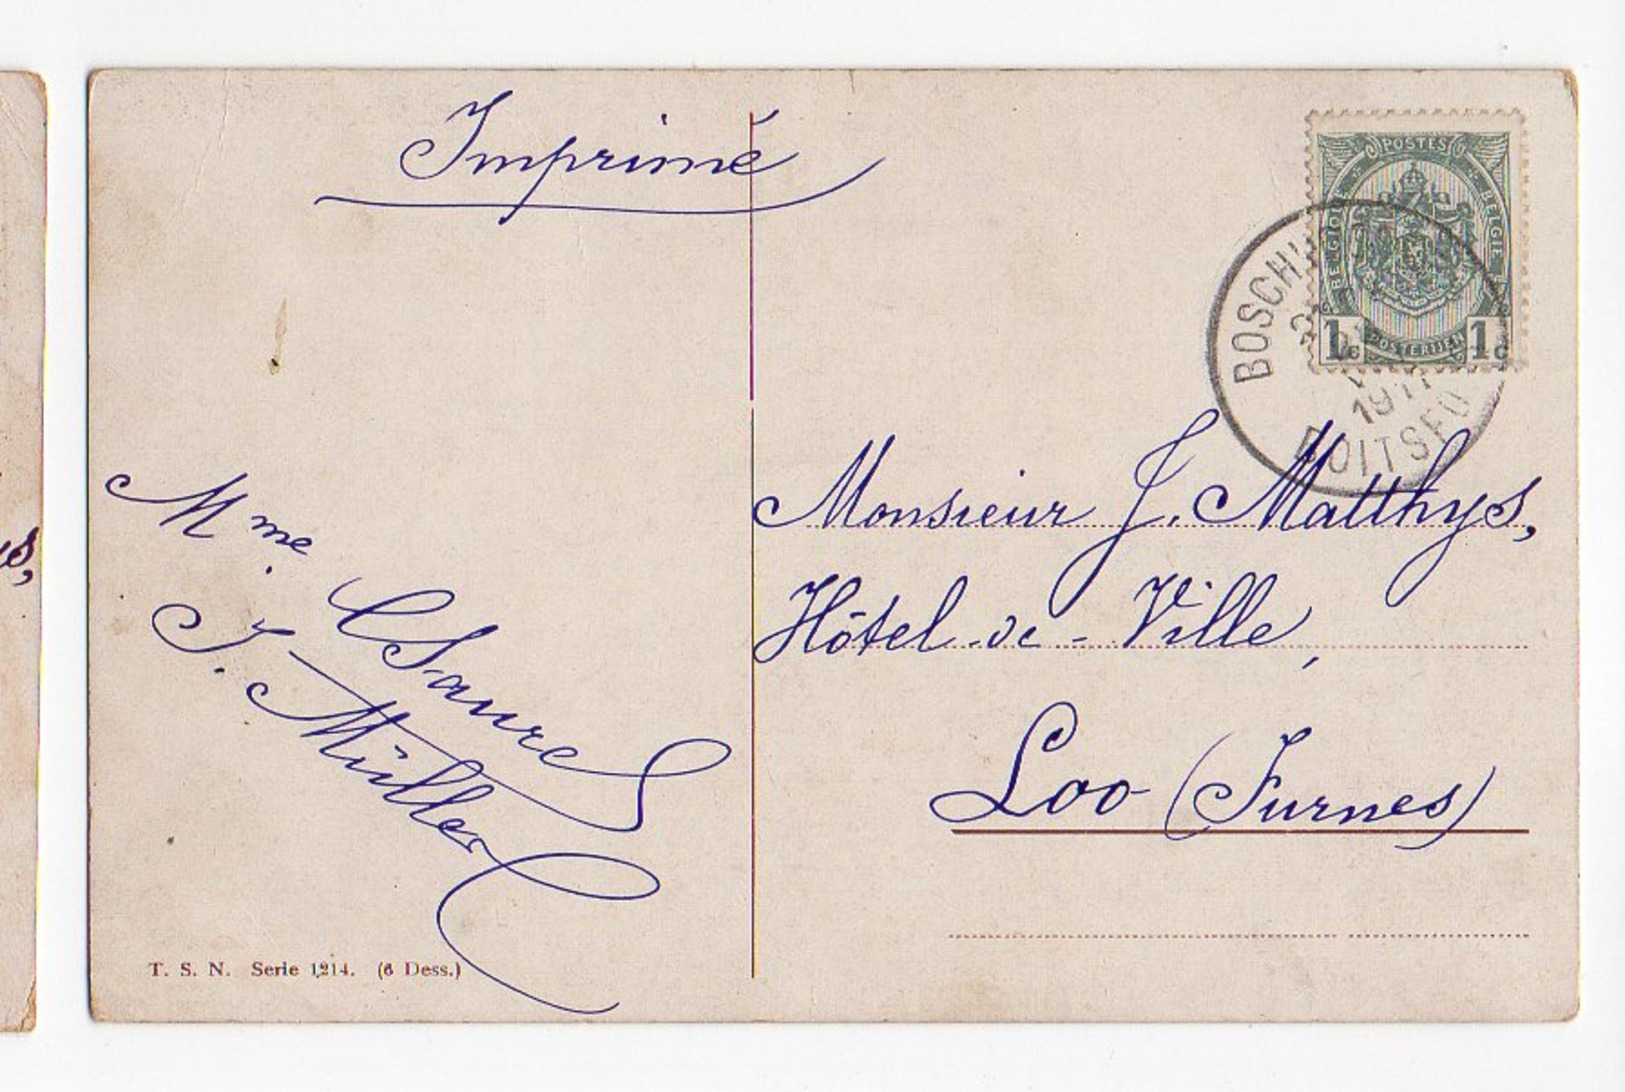 Imprimé
POSTES
BELGIQUE BELGIE
1c 1c
POSTERIJEN
BOSCH
1911
BOITSFO
Monsieur J. Matthys,
Hôtel-de-Ville,
Loo (Furnes)
Mme
J. Müller
T. S. N. Serie 1214. (6 Dess.)
s,